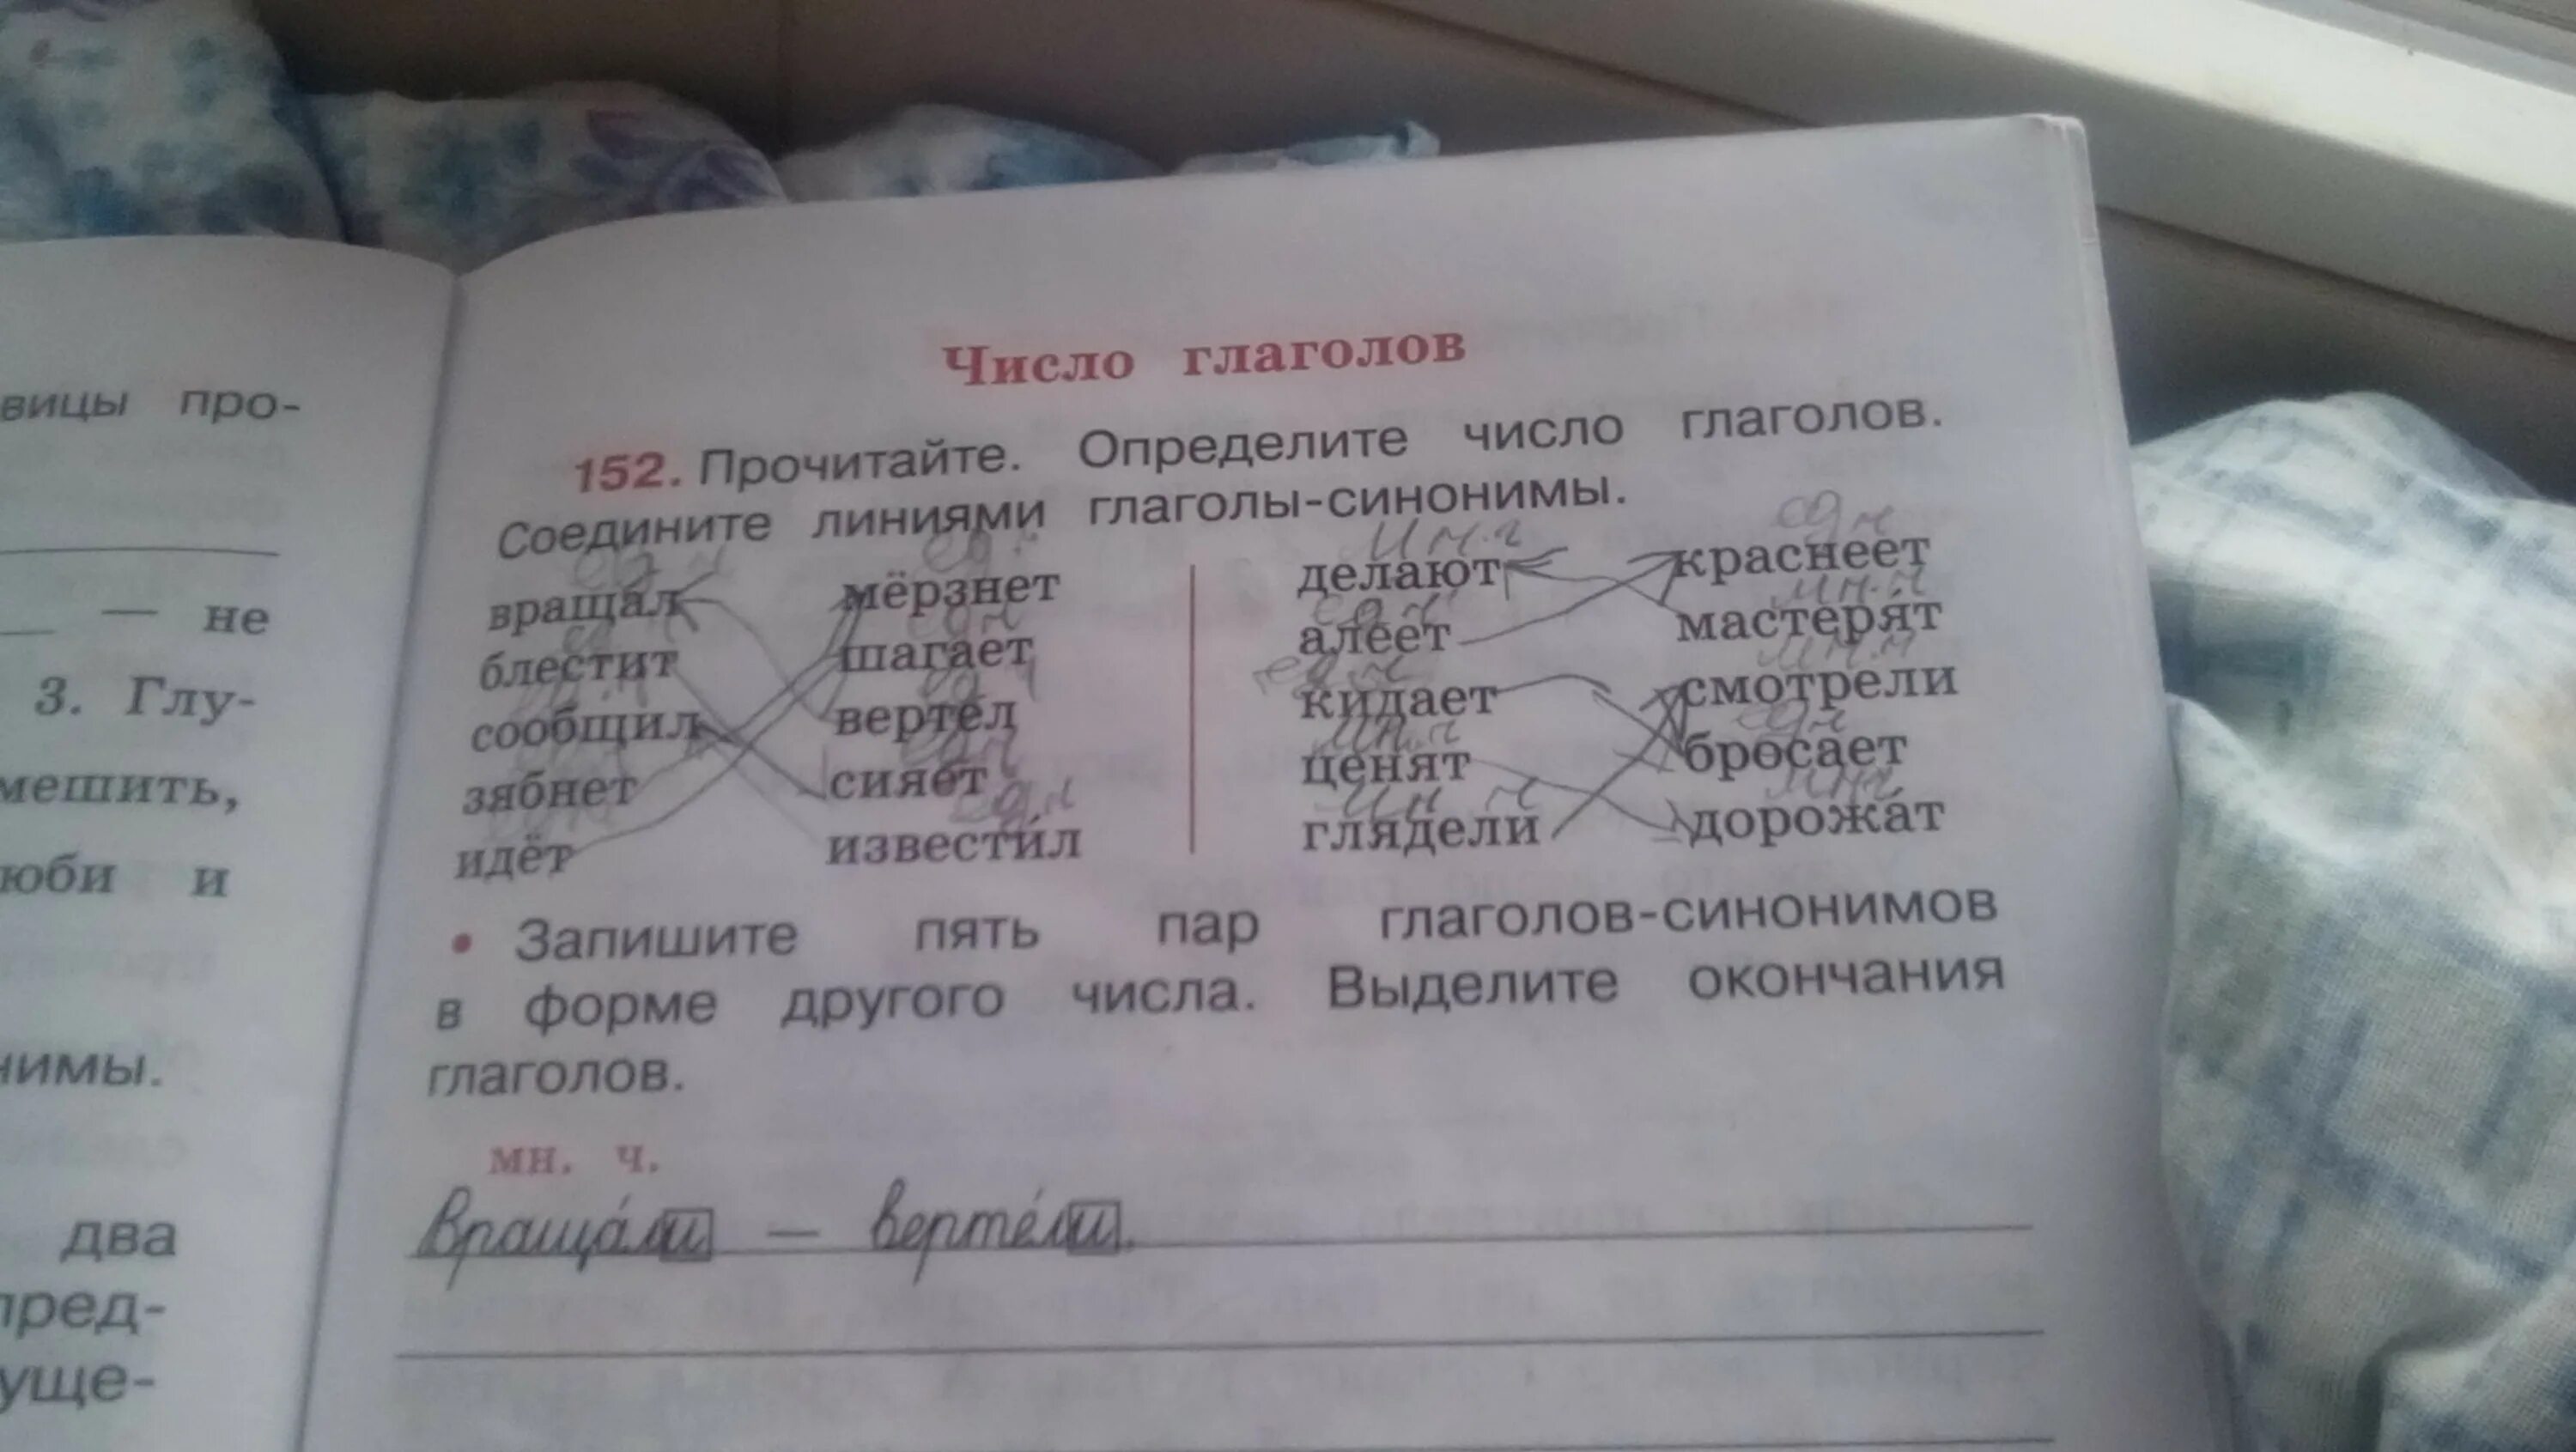 вицы про-
— не
3. Глу-
мешить,
юби и
нимы.
два
пред-
уще-
Число глаголов
152. Прочитайте. Определите число глаголов.
Соедините линиями глаголы-синонимы.
ед ч ед. мн.ч ед ч
вращал мёрзнет делают краснеет
ед ч ед ч мн.ч
блестит шагает алеет мастерят
ед ед ч мн.ч
сообщил вертел кидает смотрели
ед ч мн.ч ед ч
зябнет сияет ценят бросает
ед.ч мн ч мн ч
идёт извести́л глядели дорожат
• Запишите пять пар глаголов-синонимов
в форме другого числа. Выделите окончания
глаголов.
мн. ч.
Враща́ли — верте́ли.